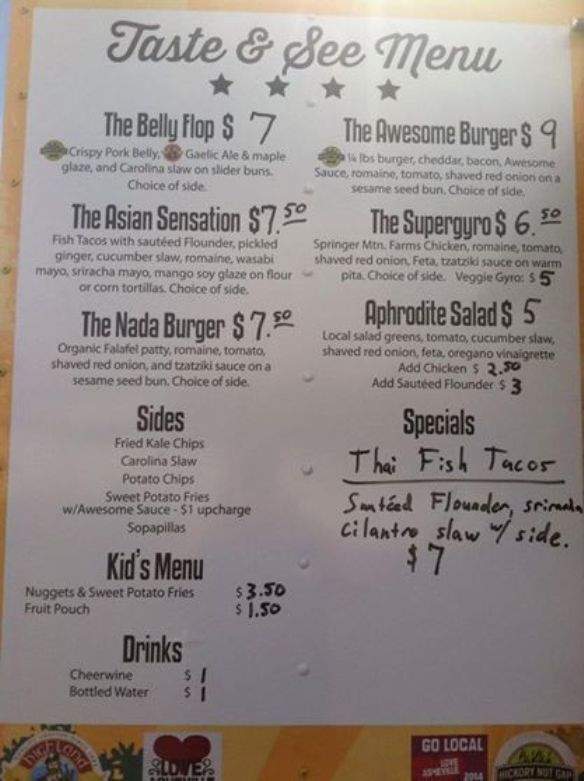 Taste & See Menu
The Belly Flop $ 7
Crispy Pork Belly, Gaelic Ale & maple
glaze, and Carolina slaw on slider buns.
Choice of side.
The Asian Sensation $7.50
Fish Tacos with sautéed Flounder, pickled
ginger, cucumber slaw, romaine, wasabi
mayo, sriracha mayo, mango soy glaze on flour
or corn tortillas. Choice of side.
The Nada Burger $7.50
Organic Falafel patty, romaine, tomato,
shaved red onion, and tzatziki sauce on a
sesame seed bun. Choice of side.
Sides
Fried Kale Chips
Carolina Slaw
Potato Chips
Sweet Potato Fries
w/Awesome Sauce - $1 upcharge
Sopapillas
Kid's Menu
Nuggets & Sweet Potato Fries $3.50
Fruit Pouch $1.50
Drinks
Cheerwine $1
Bottled Water $1
The Awesome Burger $ 9
¼ lbs burger, cheddar, bacon, Awesome
Sauce, romaine, tomato, shaved red onion on a
sesame seed bun. Choice of side.
The Supergyro $ 6.50
Springer Mtn. Farms Chicken, romaine, tomato,
shaved red onion, Feta, tzatziki sauce on warm
pita. Choice of side. Veggie Gyro: $5
Aphrodite Salad $ 5
Local salad greens, tomato, cucumber slaw,
shaved red onion, feta, oregano vinaigrette
Add Chicken $ 2.50
Add Sautéed Flounder $ 3
Specials
Thai Fish Tacos
Sautéed Flounder,
cilantro slaw w/ side.
$7
HIGHLAND
LOVE
GO LOCAL
LOVE
ASHEVILLE
2014
HICKORY NUT GAP